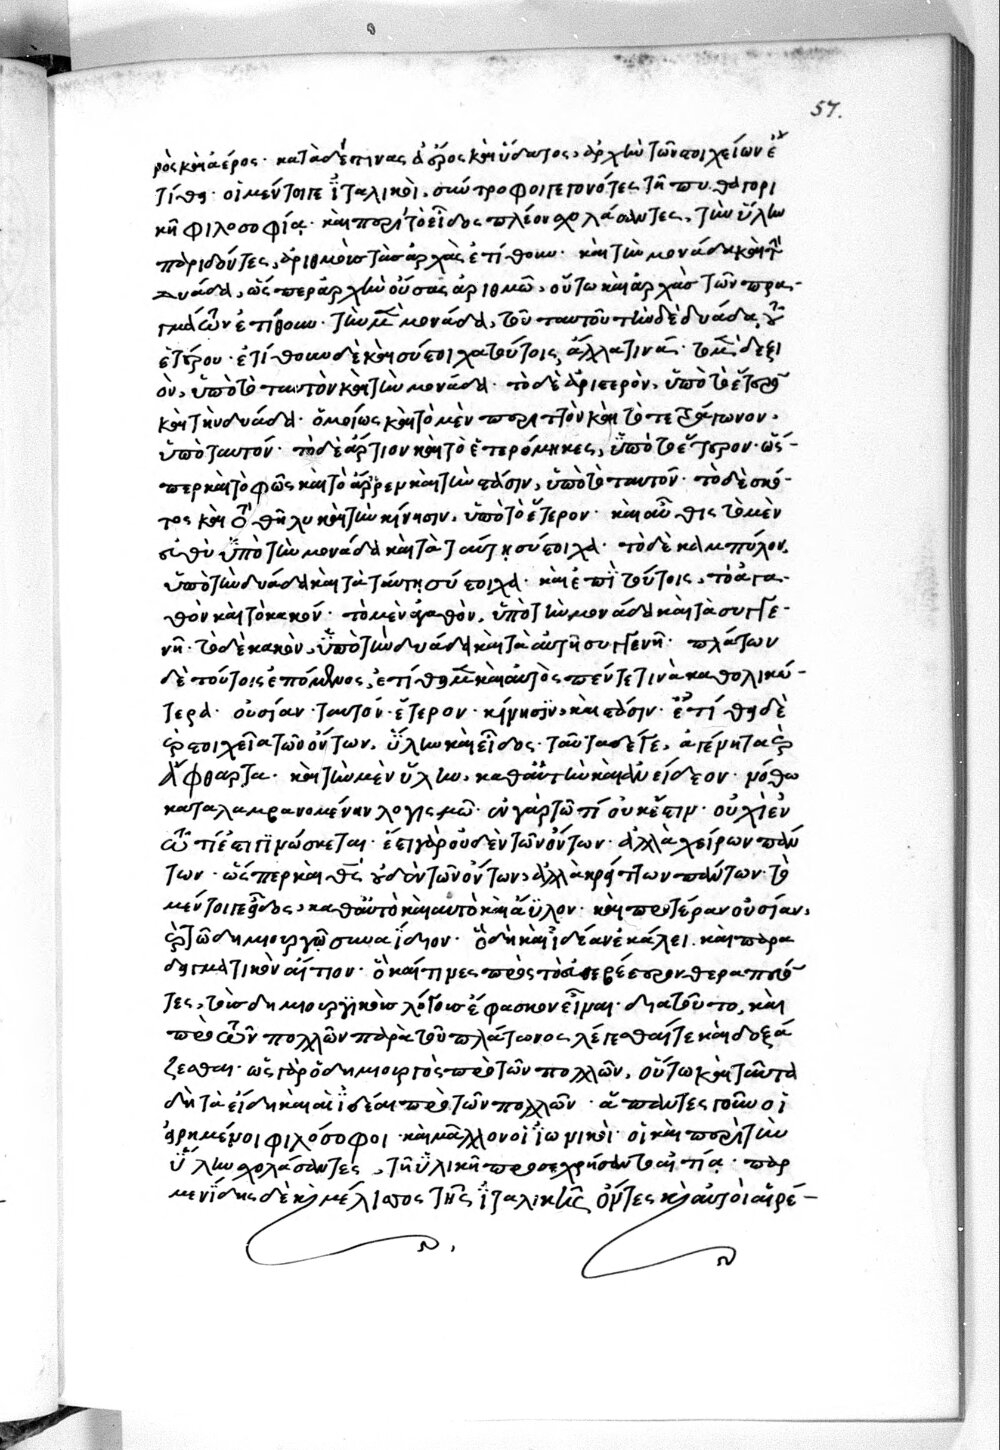 57.
ρὸς καὶ ἀέρος· κατὰ δέ τινας ἀέρος καὶ ὕδατος, ἀρχὴν τῶν στοιχείων ἐ
τίθη· οἱ μέντοιγε ἰταλικοὶ, σύντροφοι γεγονότες τῆ πυθαγορι
κῆ φιλοσοφία· καὶ περὶ τὸ εἶδος πλέον σχολάσαντες, τὴν ὕλην
παριδόντες, ἀριθμοὺς τὰς ἀρχὰς ἐτίθουν· καὶ τὴν μονάδα καὶ τὴν
δυάδα, ὥσπερ ἀρχὴν οὔσας ἀριθμῶν, οὕτω καὶ ἀρχὰς τῶν πρα-
γμάτων ἐτίθουν· τὴν μὲν μονάδα, τοῦ ταυτοῦ τὴν δὲ δυάδα, τοῦ
ἑτέρου· ἐτίθουν δὲ καὶ σύστοιχα τούτοις ἄλλα τινά· τὸ μὲν δεξι
ὸν, ὑπὸ τὸ ταυτὸν καὶ τὴν μονάδα· τὸ δὲ ἀριστερὸν, ὑπὸ τὸ ἕτερον
καὶ τὴν δυάδα· ὁμοίως καὶ τὸ μὲν περιττὸν καὶ τὸ τετράγωνον,
ὑπὸ ταυτόν· τὸ δὲ ἄρτιον καὶ τὸ ἑτερόμηκες, ὑπὸ τὸ ἕτερον· ὥσ-
περ καὶ τὸ φῶς καὶ τὸ ἄρρεν καὶ τὴν στάσιν, ὑπὸ τὸ ταυτόν· τὸ δὲ σκό-
τος καὶ τὸ θῆλυ καὶ τὴν κίνησιν, ὑπὸ τὸ ἕτερον· καὶ αὖθις τὸ μὲν
εὐθὺ ὑπὸ τὴν μονάδα καὶ τὰ ταύτη σύστοιχα· τὸ δὲ καμπύλον,
ὑπὸ τὴν δυάδα καὶ τὰ ταύτη σύστοιχα· καὶ ἐπὶ τούτοις, τὸ ἀγα-
θὸν καὶ τὸ κακόν· τὸ μὲν ἀγαθὸν, ὑπὸ τὴν μονάδα καὶ τὰ συγγε-
νῆ· τὸ δὲ κακὸν, ὑπὸ τὴν δυάδα καὶ τὰ αὐτῆ συγγενῆ· πλάτων
δὲ τούτοις ἑπόμενος, ἐτίθη μὲν καὶ αὐτὸς πέντε τινὰ καθολικώ-
τερα· οὐσίαν· ταυτόν· ἕτερον· κίνησιν, καὶ στάσιν· ἐτίθη δὲ
καὶ στοιχεῖα τῶν ὄντων, ὕλην καὶ εἶδος· ταῦτα δέ γε, ἀγένητα καὶ
ἄφθαρτα· καὶ τὴν μὲν ὕλην, καθ' αὑτὴν καὶ ἀνείδεον· νόθω
καταλαμβανομένην λογισμῶ· ἐν γὰρ τῶ τί οὐκ ἔστιν· οὐχὶ ἐν
τῶ τί ἐστι γινώσκεται· ἔστι γὰρ οὐδὲν τῶν ὄντων· ἀλλὰ χείρων πάν
των· ὥσπερ καὶ θεὸς οὐδὲν τῶν ὄντων, ἀλλὰ κρείττων πάντων· τὸ
μέντοιγε εἶδος, καθ' αὑτὸ καὶ αὐτὸ καὶ ἄϋλον· καὶ προτέραν οὐσίαν,
καὶ τῶ δημιουργῶ συναΐδιον· ὃ δὴ καὶ ἰδέαν ἐκάλει· καὶ παρα
δειγματικὸν αἴτιον· ὃ καί τινες πρὸς τὸ εὐσεβέστερον θεραπεύον
τες, τοὺς δημιουργικοὺς λόγους ἔφασκον εἶναι· διὰ τοῦτο, καὶ
πρὸ τῶν πολλῶν παρὰ τοῦ πλάτωνος λέγεσθαί τε καὶ δοξά
ζεσθαι· ὡς γὰρ ὁ δημιουργὸς πρὸ τῶν πολλῶν, οὕτω καὶ ταῦτα
δὴ τὰ εἴδη καὶ αἱ ἰδέαι πρὸ τῶν πολλῶν· ἅπαντες γοῦν οἱ
εἰρημένοι φιλόσοφοι· καὶ μᾶλλον οἱ ἰωνικοὶ· οἱ καὶ περὶ τὴν
ὕλην σχολάσαντες, τῆ ὑλικῆ προσεχρήσαντο αἰτία· παρ
μενίδης δὲ καὶ μέλισσος τῆς ἰταλικῆς ὄντες καὶ αὐτοὶ αἱρέ-